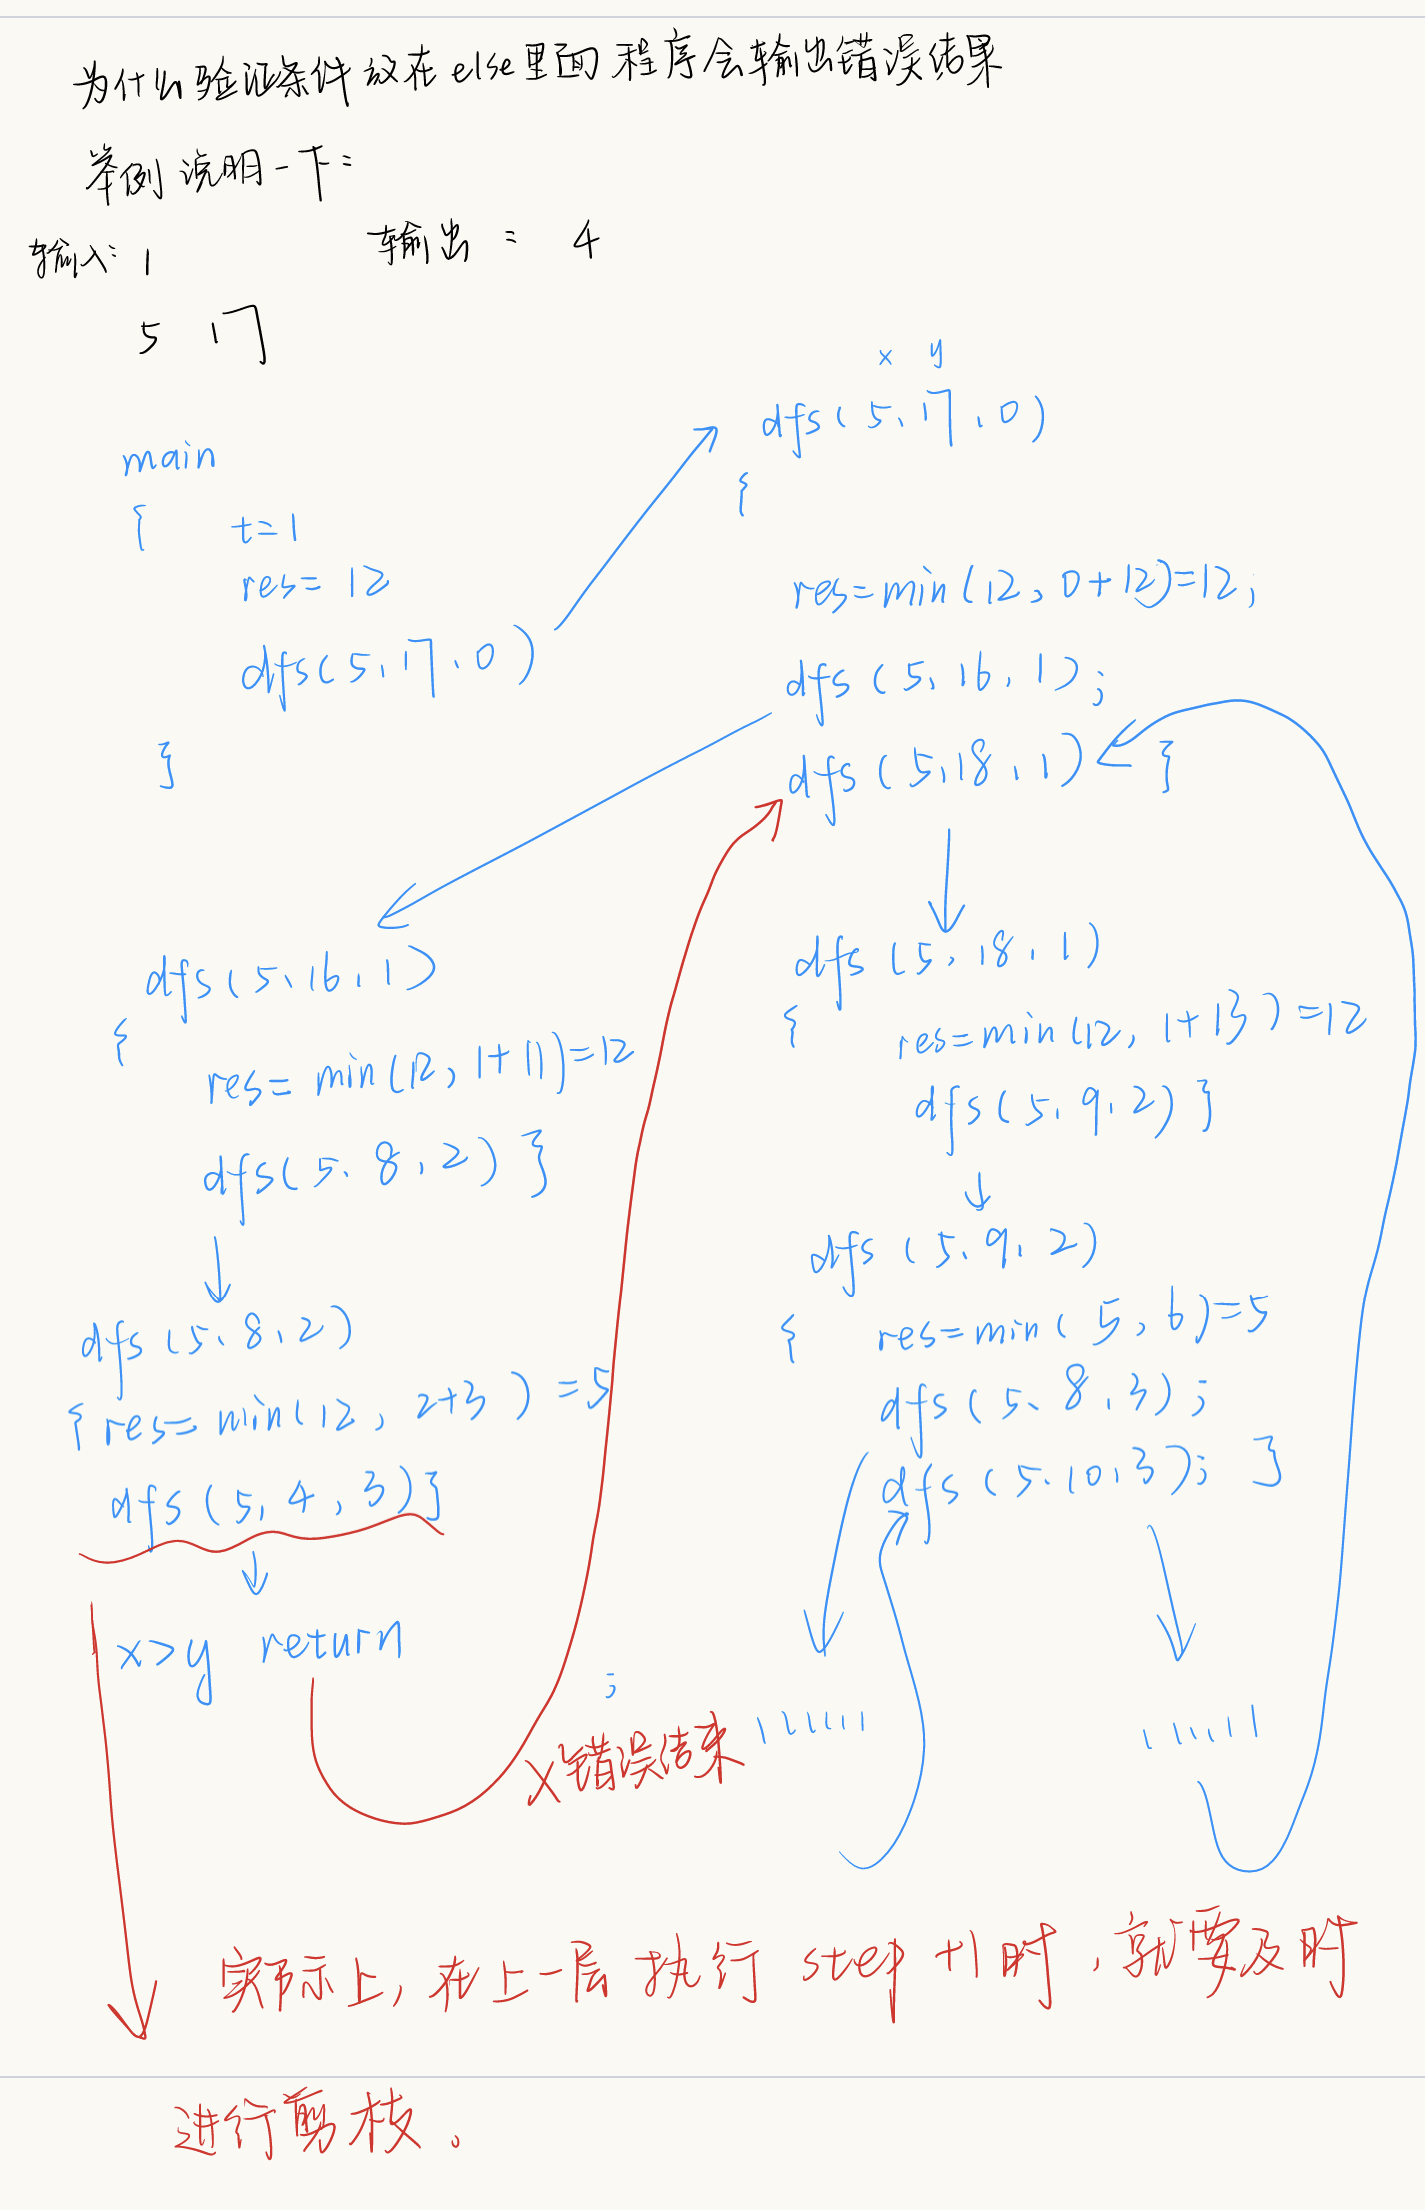 为什么验证条件放在else里面程序会输出错误结果
举例说明一下:
输入: 1
输出: 4
5 17
x y
dfs(5,17,0)
{
res=min(12,0+12)=12;
dfs(5,16,1);
dfs(5,18,1) }
main
{ t=1
res=12
dfs(5,17,0)
}
dfs(5,16,1)
{
res=min(12,1+11)=12
dfs(5,8,2) }
dfs(5,8,2)
{ res=min(12,2+3)=5
dfs(5,4,3)}
x>y return
;
dfs(5,18,1)
{
res=min(12,1+13)=12
dfs(5,9,2) }
dfs(5,9,2)
{ res=min(5,6)=5
dfs(5,8,3);
dfs(5,10,3); }
X错误结束
实际上,在上一层执行 step+1时,就要及时
进行剪枝。